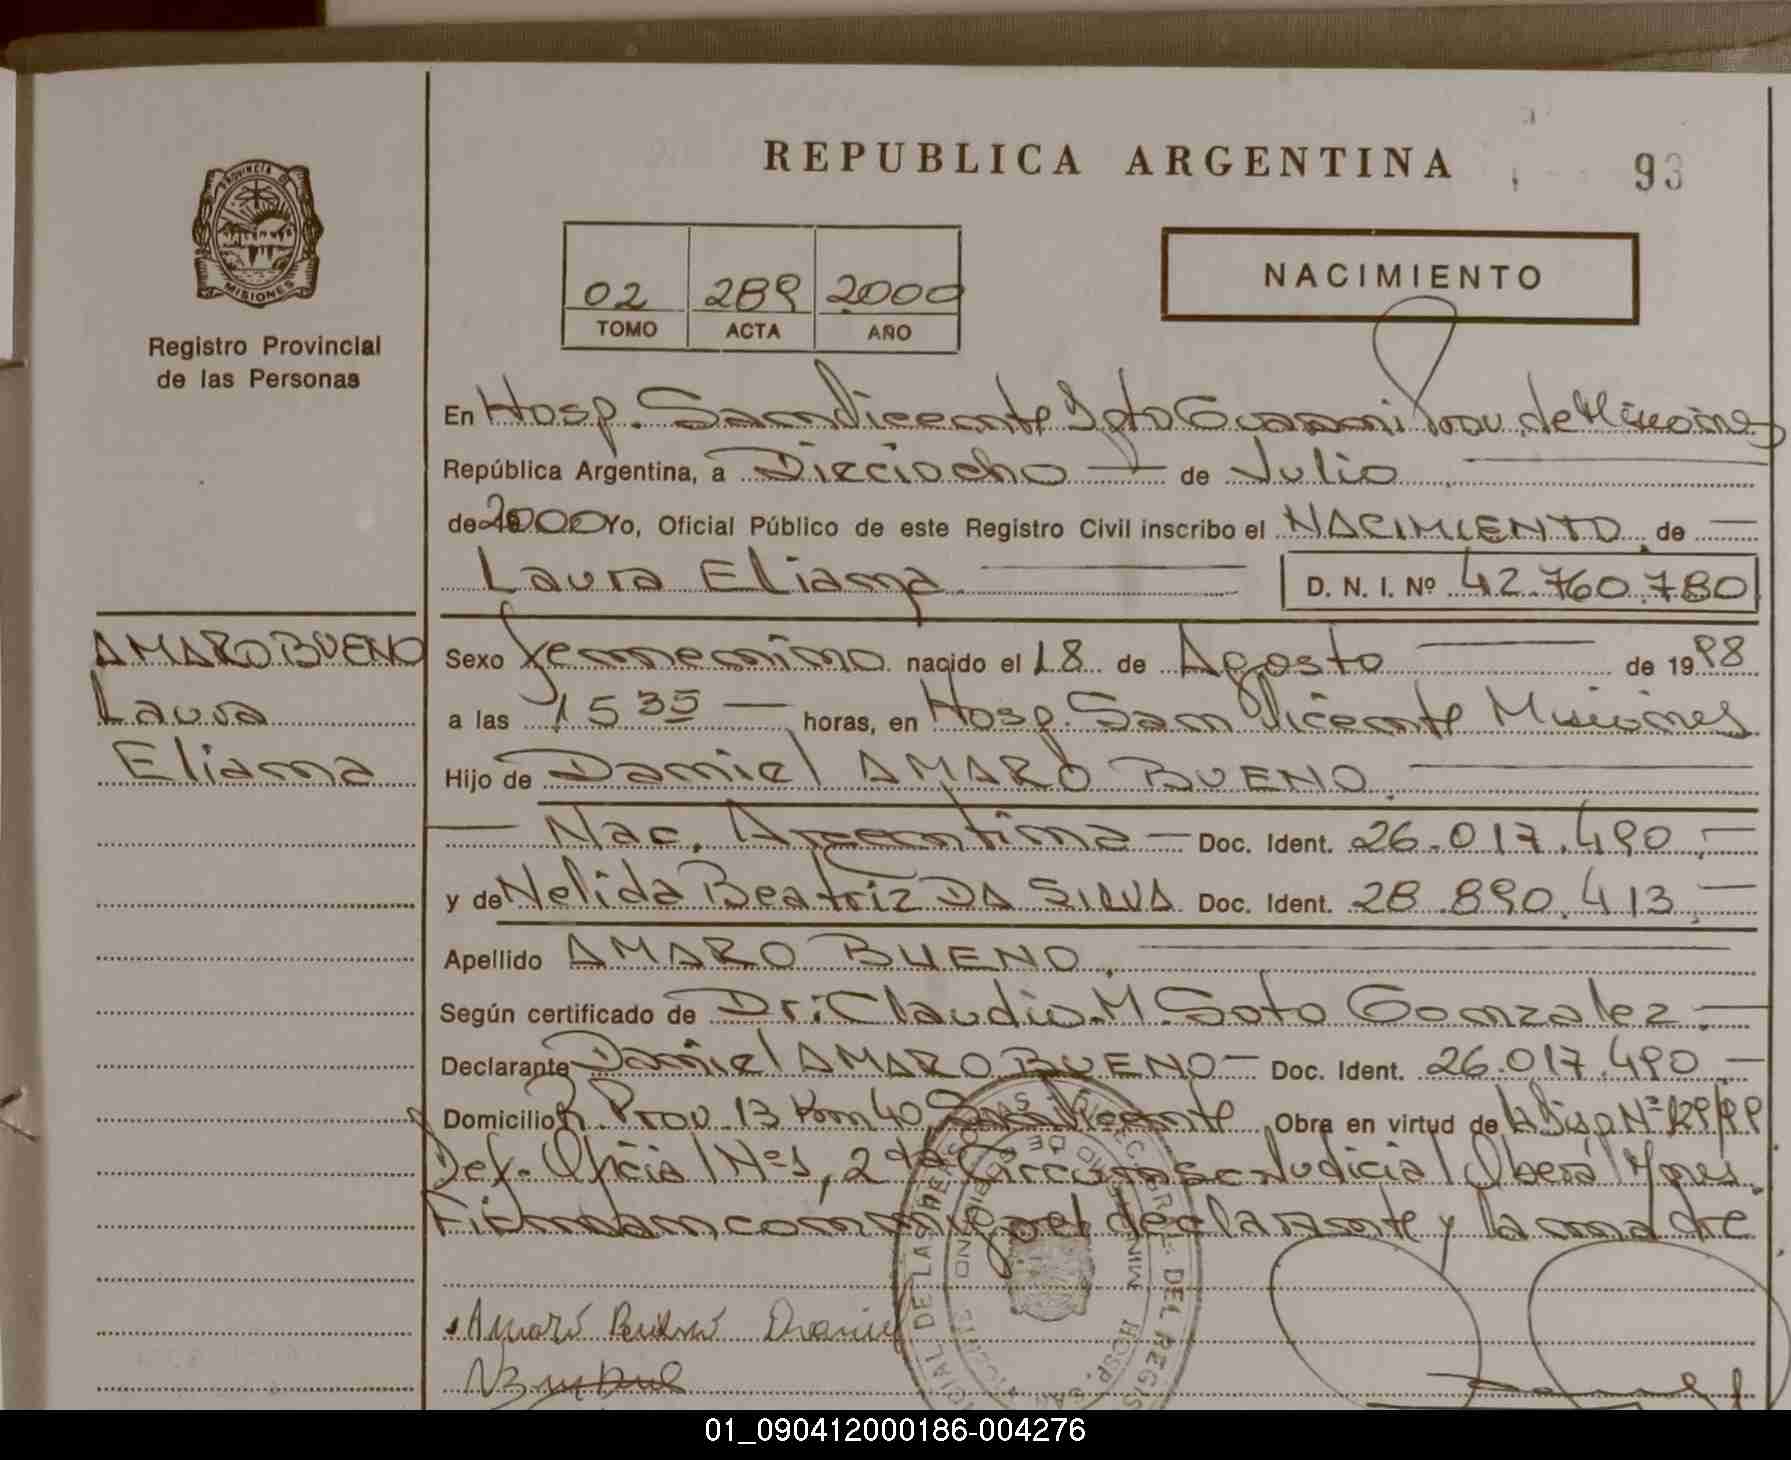 REPUBLICA ARGENTINA
93
PROVINCIA DE
MISIONES
Registro Provincial
de las Personas
02 289 2000
TOMO ACTA AÑO
NACIMIENTO
En Hosp. San Vicente Dpto Guarani Prov. de Misiones
República Argentina, a Dieciocho de Julio
de 2000 Yo, Oficial Público de este Registro Civil inscribo el NACIMIENTO de
Laura Eliana D. N. I. Nº 42.760.780
AMARO BUENO
Laura
Eliana
Sexo femenino nacido el 18 de Agosto de 1998
a las 15 35 horas, en Hosp. San Vicente Misiones
Hijo de Daniel AMARO BUENO
Nac. Argentina Doc. Ident. 26.017.490
y de Nelida Beatriz DA SILVA Doc. Ident. 28.890.413
Apellido AMARO BUENO
Según certificado de Dr: Claudio M. Soto Gonzalez
Declarante Daniel AMARO BUENO Doc. Ident. 26.017.490
Domicilio R. Prov. 13 Km 40 San Vicente Obra en virtud de la Disp Nº 129/99
Def. Oficial Nº 1, 2da Circunsc. Judicial Oberá Mnes.
Firman conmigo el declarante y la madre
Amaro Bueno Daniel
01_090412000186-004276